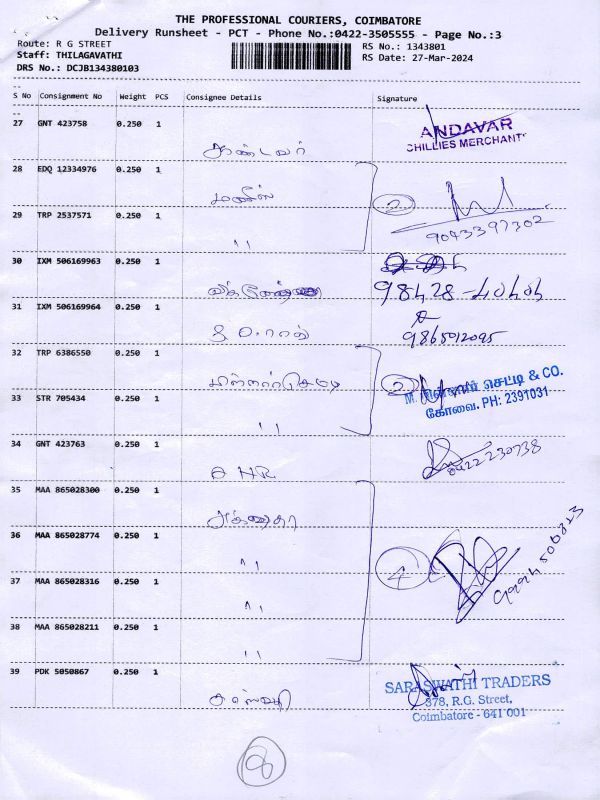 THE PROFESSIONAL COURIERS, COIMBATORE
Delivery Runsheet - PCT - Phone No.:0422-3505555 - Page No.:3
Route: R G STREET
RS No.: 1343801
Staff: THILAGAVATHI
RS Date: 27-Mar-2024
DRS No.: DCJB134380103
S No Consignment No Weight PCS Consignee Details Signature
27 GNT 423758 0.250 1
ANDAVAR
CHILLIES MERCHANT
ஆண்டவர்
28 EDQ 12334976 0.250 1
2
29 TRP 2537571 0.250 1
9043397302
"
30 IXM 506169963 0.250 1
31 IXM 506169964 0.250 1
9865012095
32 TRP 6386550 0.250 1
2
செட்டி & CO.
33 STR 705434 0.250 1
கோவை. PH: 2391031
"
34 GNT 423763 0.250 1
0422 230738
35 MAA 865028300 0.250 1
36 MAA 865028774 0.250 1
"
4
37 MAA 865028316 0.250 1
"
38 MAA 865028211 0.250 1
"
39 PDK 5050867 0.250 1
SARASWATHI TRADERS
378, R.G. Street,
Coimbatore - 641 001
8